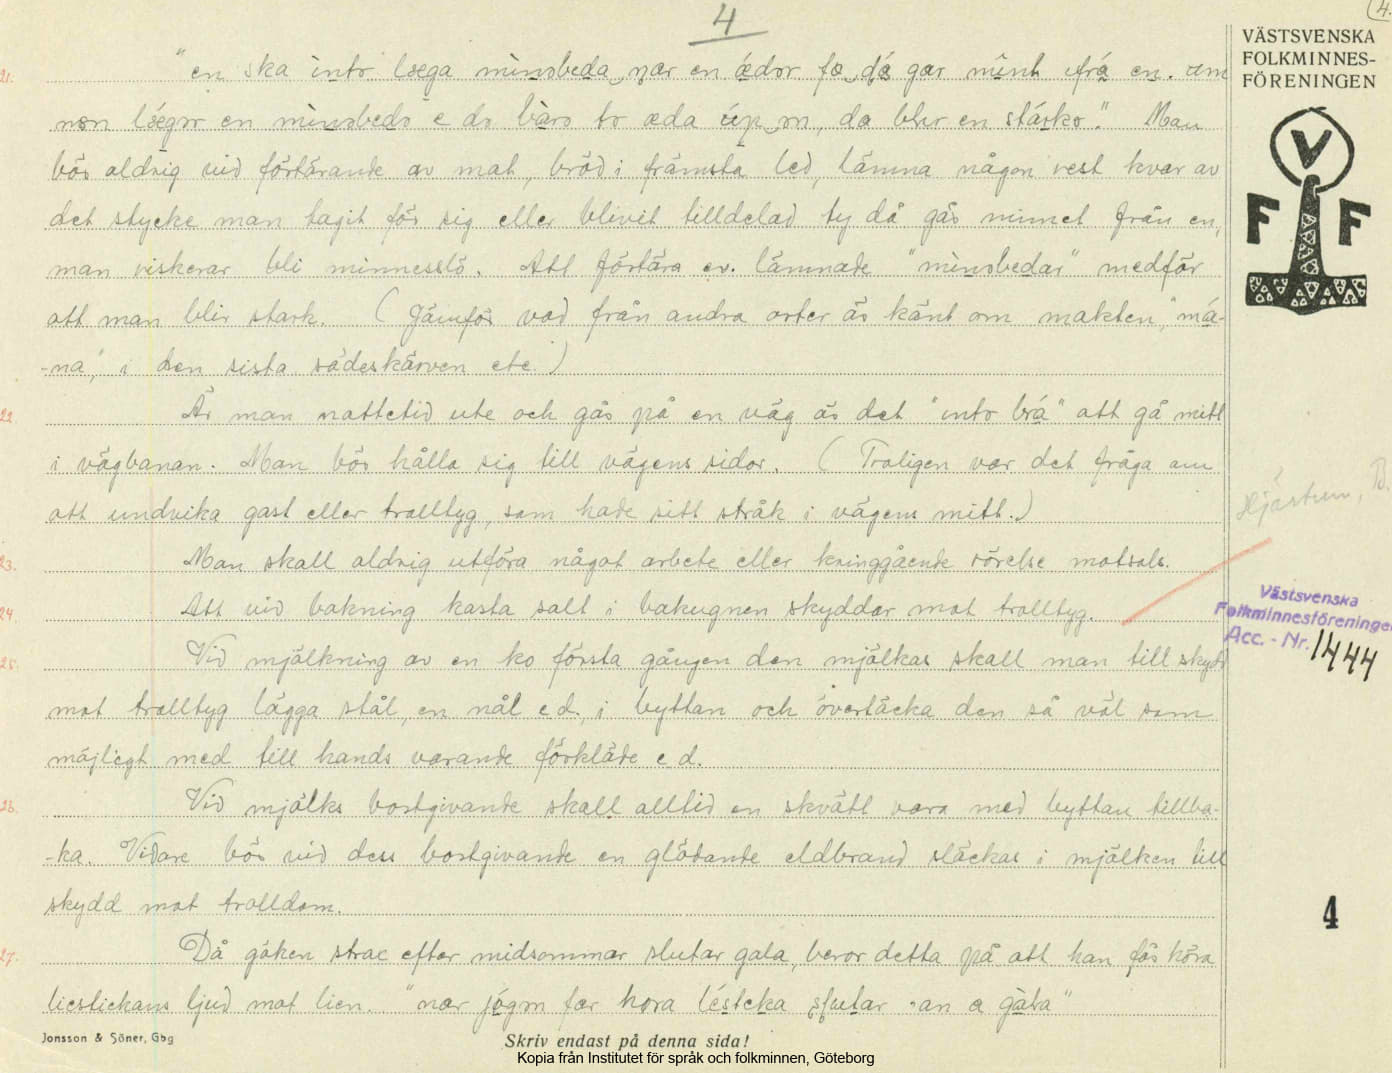 4
4.
VÄSTSVENSKA
FOLKMINNES-
FÖRENINGEN
V
F F
21. "en ska into lsega minsbeda nar en ador fo då gar mint ifrá en. um
non lsegor en minsbedo e do bàro to æda úp on, da blir en stárko." Man
bör aldrig vid förtärande av mat, bröd i främsta led, lämna någon rest kvar av
det stycke man tagit för sig eller blivit tilldelad ty då går minnet från en,
man riskerar bli minneslö. Att förtära ev. lämnade "minsbedar" medför
att man blir stark. (Jämför vad från andra orter är känt om makten, "må-
-na", i den sista sädeskärven etc.)
22. Är man nattetid ute och går på en väg är det "into brá" att gå mitt
i vägbanan. Man bör hålla sig till vägens sidor. (Troligen var det fråga om
att undvika gast eller trolltyg, som hade sitt stråk i vägens mitt.)
23. Man skall aldrig utföra något arbete eller kringgående rörelse motsols.
24 Att vid bakning kasta salt i bakugnen skyddar mot trolltyg.
25. Vid mjölkning av en ko första gången den mjölkas skall man till skydd
mot trolltyg lägga stål, en nål e d., i byttan och övertäcka den så väl som
möjligt med till hands varande förkläde e d.
26. Vid mjölks bortgivande skall alltid en skvätt vara med byttan tillba-
-ka. Vidare bör vid dess bortgivande en glödande eldbrand släckas i mjölken till
skydd mot trolldom.
27. Då göken strax efter midsommar slutar gala, beror detta på att han får höra
liestickans ljud mot lien. "nar jógon far hora léstcka slutar an a gàla"
Hjärtum, B.
Västsvenska
Folkminnesföreningen
Acc. - Nr. 1444
4
Jonsson & Söner, Gbg
Skriv endast på denna sida!
Kopia från Institutet för språk och folkminnen, Göteborg